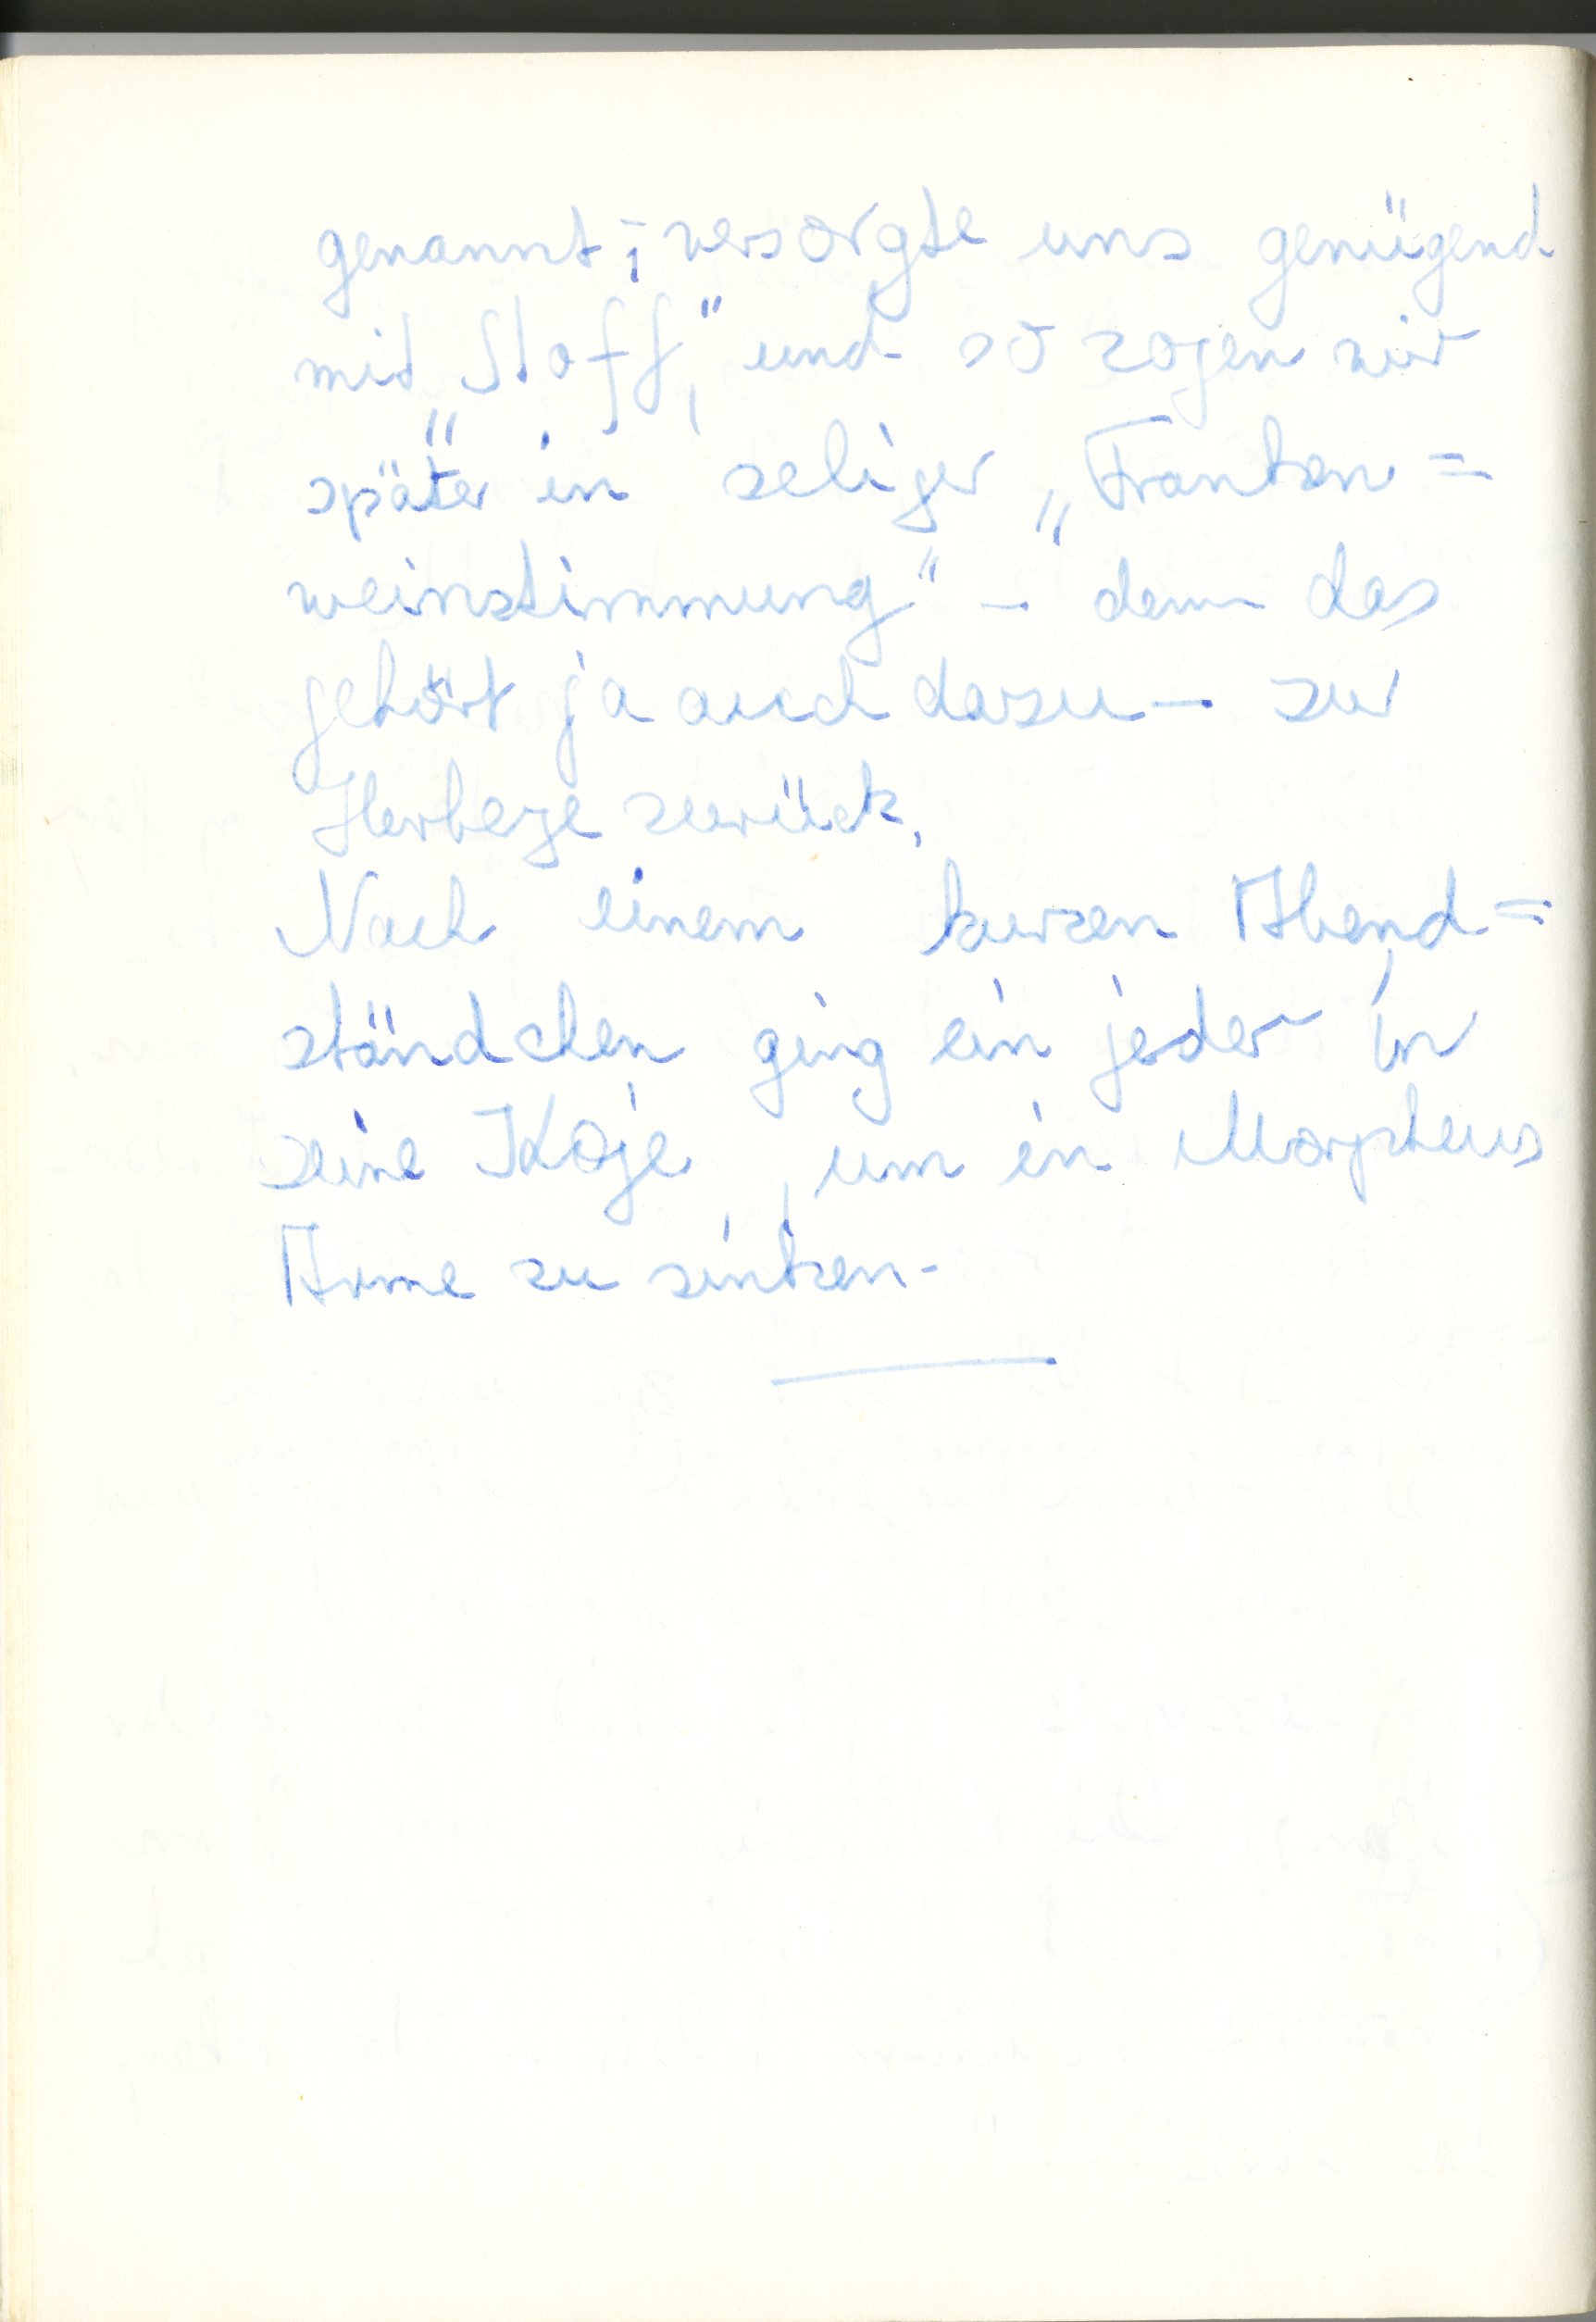 genannt, versorgte uns genügend
mit „Stoff“, und so zogen wir
später in seliger „Franken=
weinstimmung“ – denn das
gehört ja auch dazu – zur
Herberge zurück.
Nach einem kurzen Abend=
ständchen ging ein jeder in
seine Koje, um in Morpheus
Arme zu sinken.